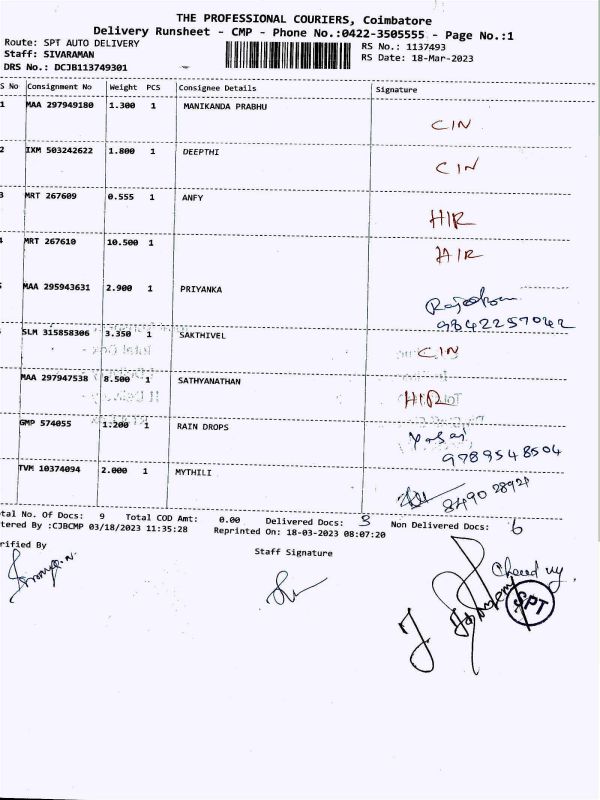 THE PROFESSIONAL COURIERS, Coimbatore
Delivery Runsheet - CMP - Phone No.:0422-3505555 - Page No.:1
Route: SPT AUTO DELIVERY
Staff: SIVARAMAN
DRS No.: DCJB113749301
RS No.: 1137493
RS Date: 18-Mar-2023
S No Consignment No Weight PCS Consignee Details Signature
1 MAA 297949180 1.300 1 MANIKANDA PRABHU CIN
2 IXM 503242622 1.800 1 DEEPTHI CIN
3 MRT 267609 0.555 1 ANFY HIR
MRT 267610 10.500 1 HIR
MAA 295943631 2.900 1 PRIYANKA
9842257042
SLM 315858306 3.350 1 SAKTHIVEL CIN
MAA 297947538 8.500 1 SATHYANATHAN HIR
GMP 574055 1.200 1 RAIN DROPS
9789548504
TVM 10374094 2.000 1 MYTHILI
849028921
tal No. Of Docs: 9 Total COD Amt: 0.00 Delivered Docs: 3 Non Delivered Docs: 6
tered By :CJBCMP 03/18/2023 11:35:28 Reprinted On: 18-03-2023 08:07:20
rified By Staff Signature
SPT